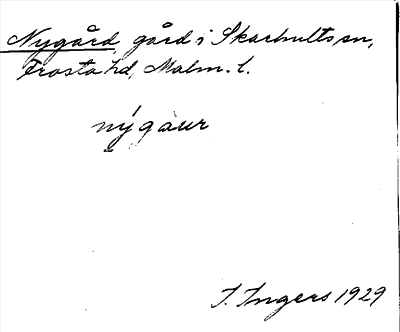 Nygård gård i Skarhults sn,
Frosta hd, Malm. l.
nýgàur
I. Ingers 1929